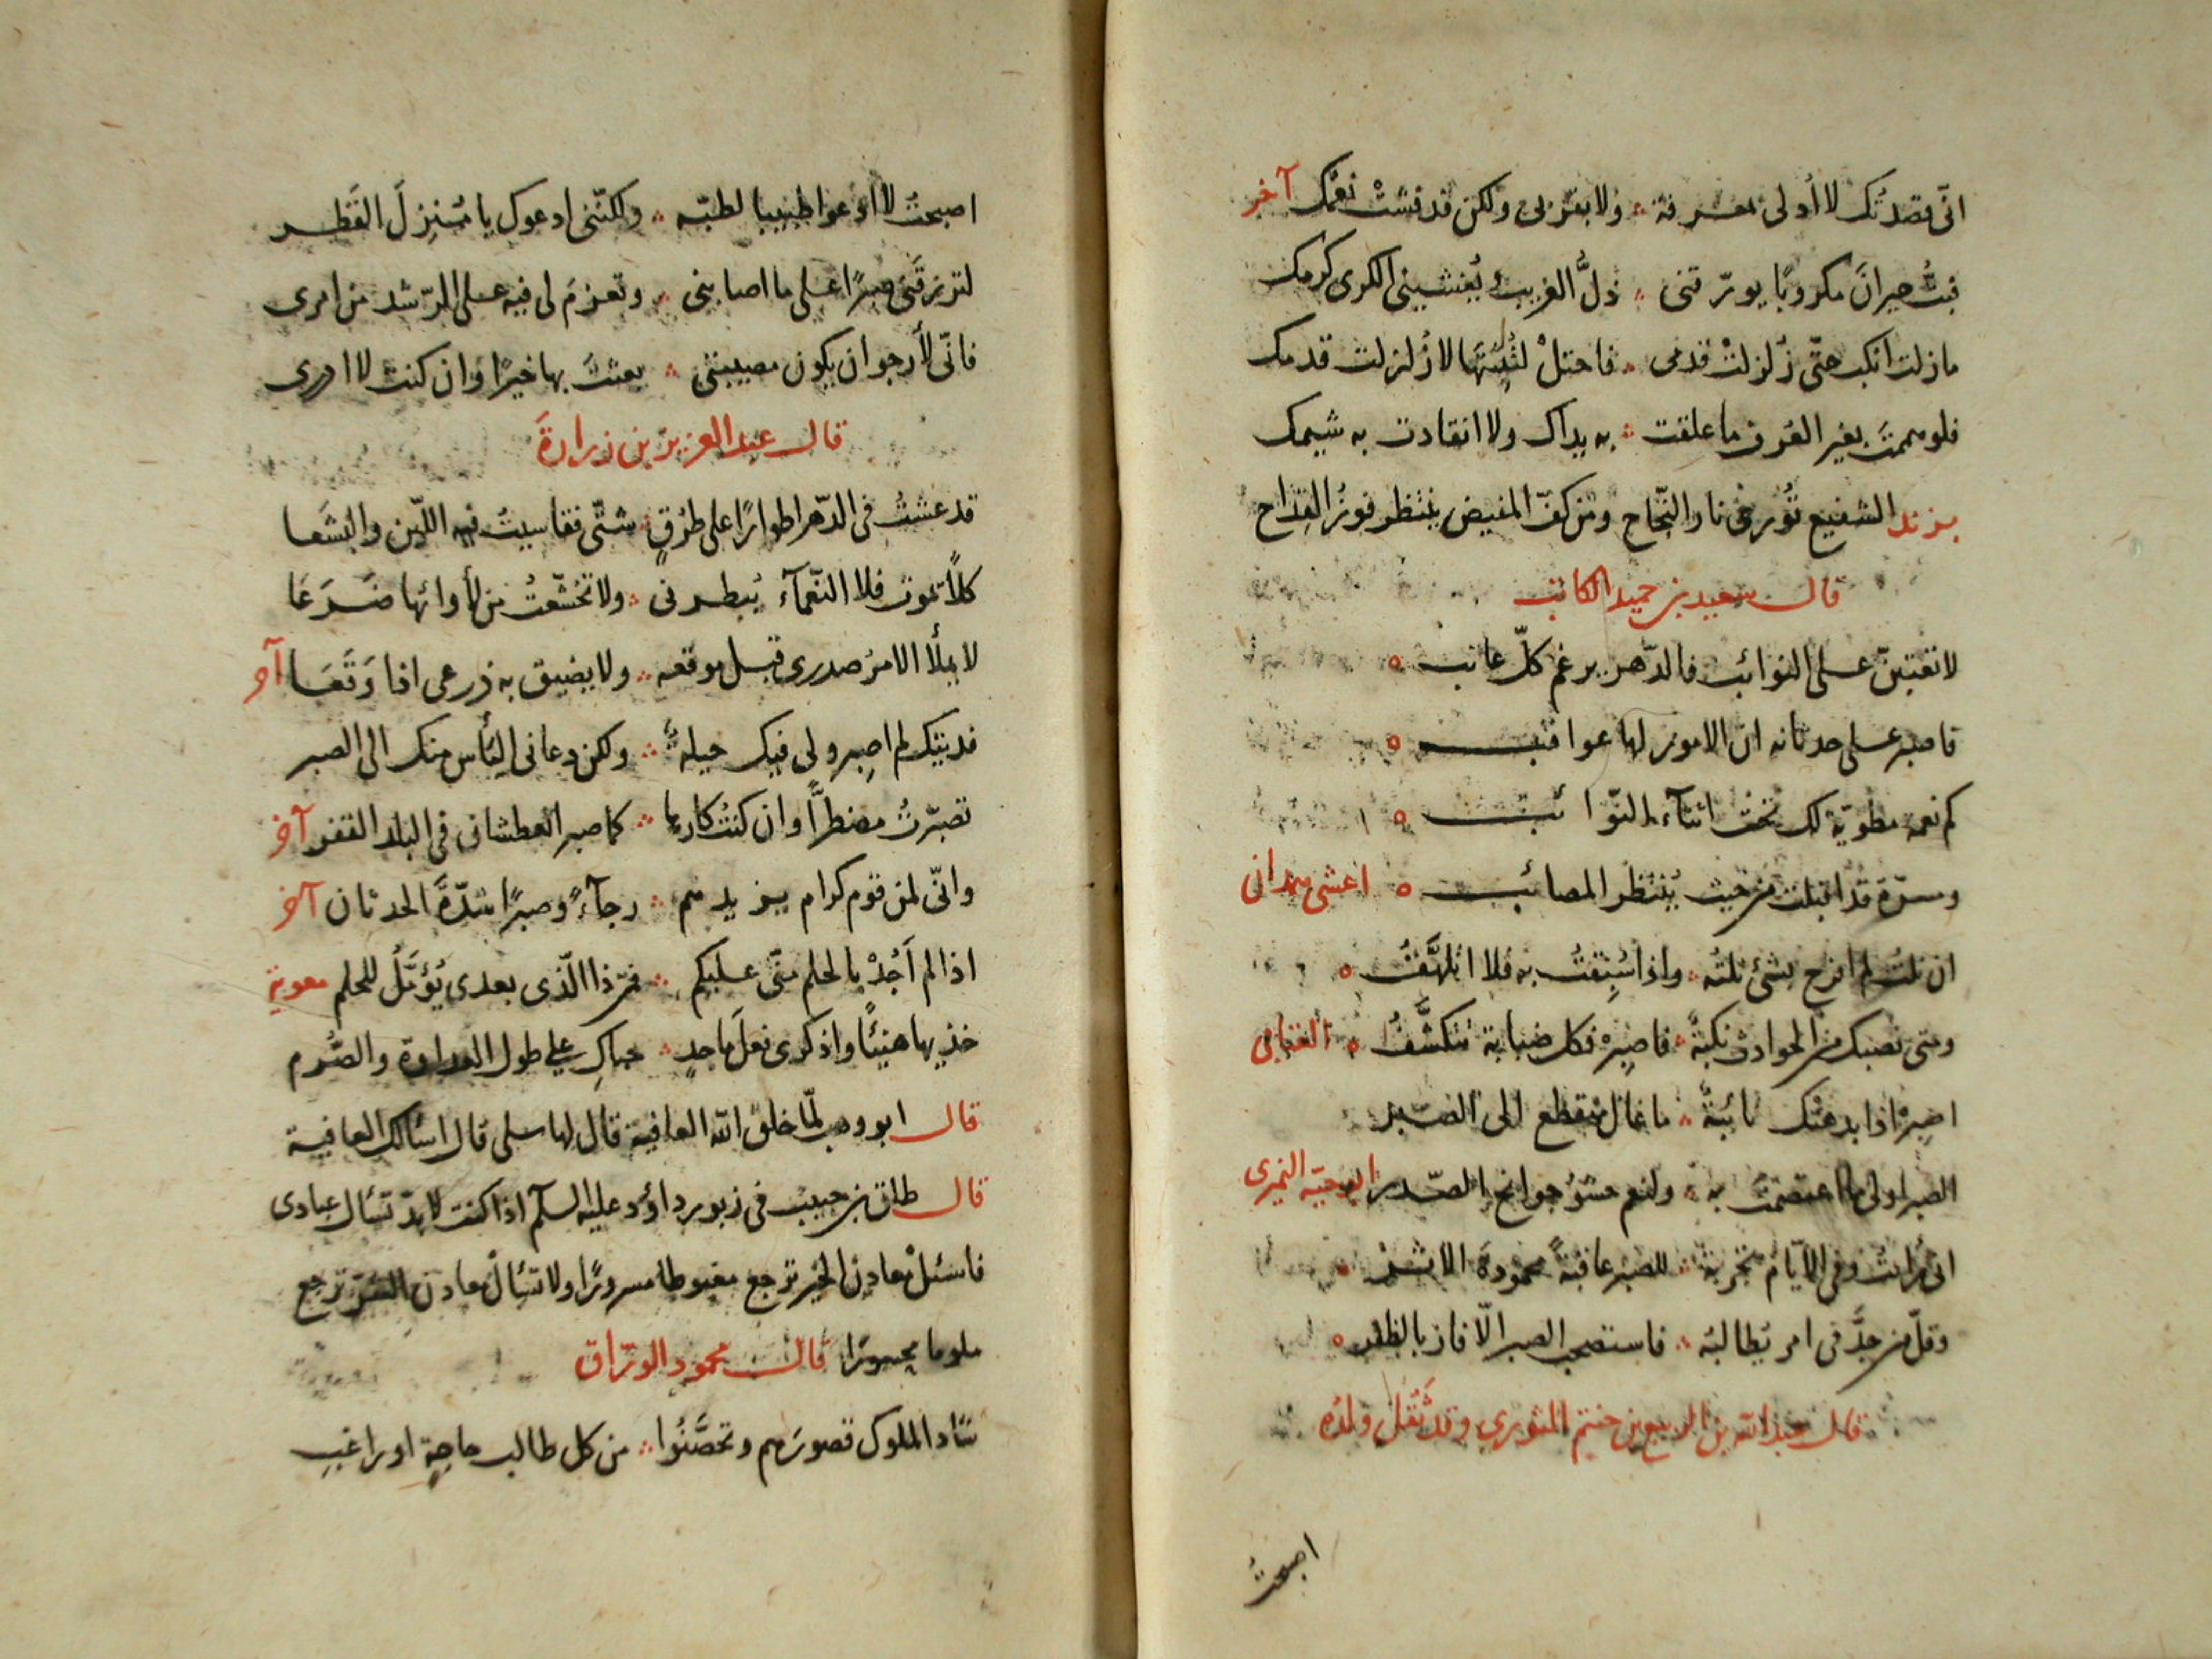 انّى قصدتك لا أدلى بمعرفة ؞ ولا بقربى ولكن قد فشت نعمك آخر
فبتُّ حيرانَ مكروبًا يورّقنى ؞ ذلُّ الغريب ويُغشينى الكرى كرمك
مازلت انكب حتّى زلزلتْ قدمى ؞ فاحتلْ لتثبيتها لا زلزلت قدمك
فلو هممتَ بغير العرف ما علقت ؞ به يداك ولا انقادت به شيمك
بزند الشفيع تُورى نار النّجاح ومن كفّ المفيض ينتظر فوزُ القداح
قال سعيد بن حميد الكاتب
لا تعتبنّ على النوائب فالدّهر يرغم كلّ عاتب
فاصبر على حدثانه ان الامور لها عواقب
كم نعمة مطويّة لك تحت اثنآء النّوائب
ومسرّة قد اقبلت من حيث يُنتظر المصائب اعشى همدان
ان نلتُ لم افرح بشئ نلتُه ؞ واذا سُبِقتُ به فلا اتلهَّفُ
ومتى تصبك من الحوادث نكبةٌ ؞ فاصبِرْ فكل ضبابة تتكشَّفُ العتابى
اصبِرْ اذا بدهتك نائبةٌ ؞ ما غال منقطع الى الصّبر
الصبر اولى ما اعتصمتُ به ؞ ولنعم حشوُ جوانح الصّدر ابوحيّة النميرى
انى رأيت وفى الايّام تجربة ؞ للصبر عاقبةً محمودة الاثر
وقلّ من جدَّ فى امر يُطالبُه ؞ فاستصحب الصبر الّا فاز بالظفر
قال عبد الله بن الربيع بن خثيم الثورى وقد ثَقُل ولدُه
اصبحتُ
اصبحتُ لا ادعوا طبيبا لطبّه ؞ ولكنّنى ادعوك يا مُنزِلَ القَطر
لترزقَنى صبرًا على ما اصابنى ؞ وتعزمَ لى فيه على الرّشد من امرى
فانّى لأرجو ان يكون مصيبتى ؞ بعثتَ بها خيرًا وان كنت لا ادرى
قال عبد العزيز بن زرارةَ
قد عشتُ فى الدّهر اطوارًا على طرُقٍ شتّى فقاسيتُ فيه اللّين والبشَعا
كلّاً بلوت فلا النّعمآء تُبطرنى ؞ ولا تخشّعتُ من لأوائها ضَرَعَا
لا يملأ الامرُ صدرى قبل موقعه ؞ ولا يضيق به ذرعى اذا وَقَعَا آخر
فديتك لم اصبِر ولى فيك حيلةٌ ؞ ولكن دعانى اليأس منك الى الصبر
تصبّرتُ مضطرًّا وان كنتُ كارها ؞ كما صبر العطشان فى البلد القفر آخر
وانّى لمن قوم كرام يزيدهم ؞ رجآءً وصبرًا شدّةُ الحدثان آخر
اذا لم اَجُدْ بالحلم منّى عليكم ؞ فمن ذا الّذى بعدى يُؤَمَّلُ للحلم معوية
خذيها هنيئًا واذكرى فعلَ ماجدٍ ؞ حباكِ على طول العداوة والصُّرم
قال ابو وهب لمّا خلق الله العافية قال لها سلى قال اسئالك العافية
قال طلق بن حبيب فى زبور داؤد عليه السلم اذا كنت لابدّ تسئال عبادى
فاسئلْ معادن الخير ترجع مغبوطا مسرورًا ولا تسئالْ معادن الشرّ ترجع
ملوما محسورًا قال محمود الورّاق
شاد الملوك قصورَهم وتحصَّنُوا ؞ من كل طالب حاجةٍ او راغبِ